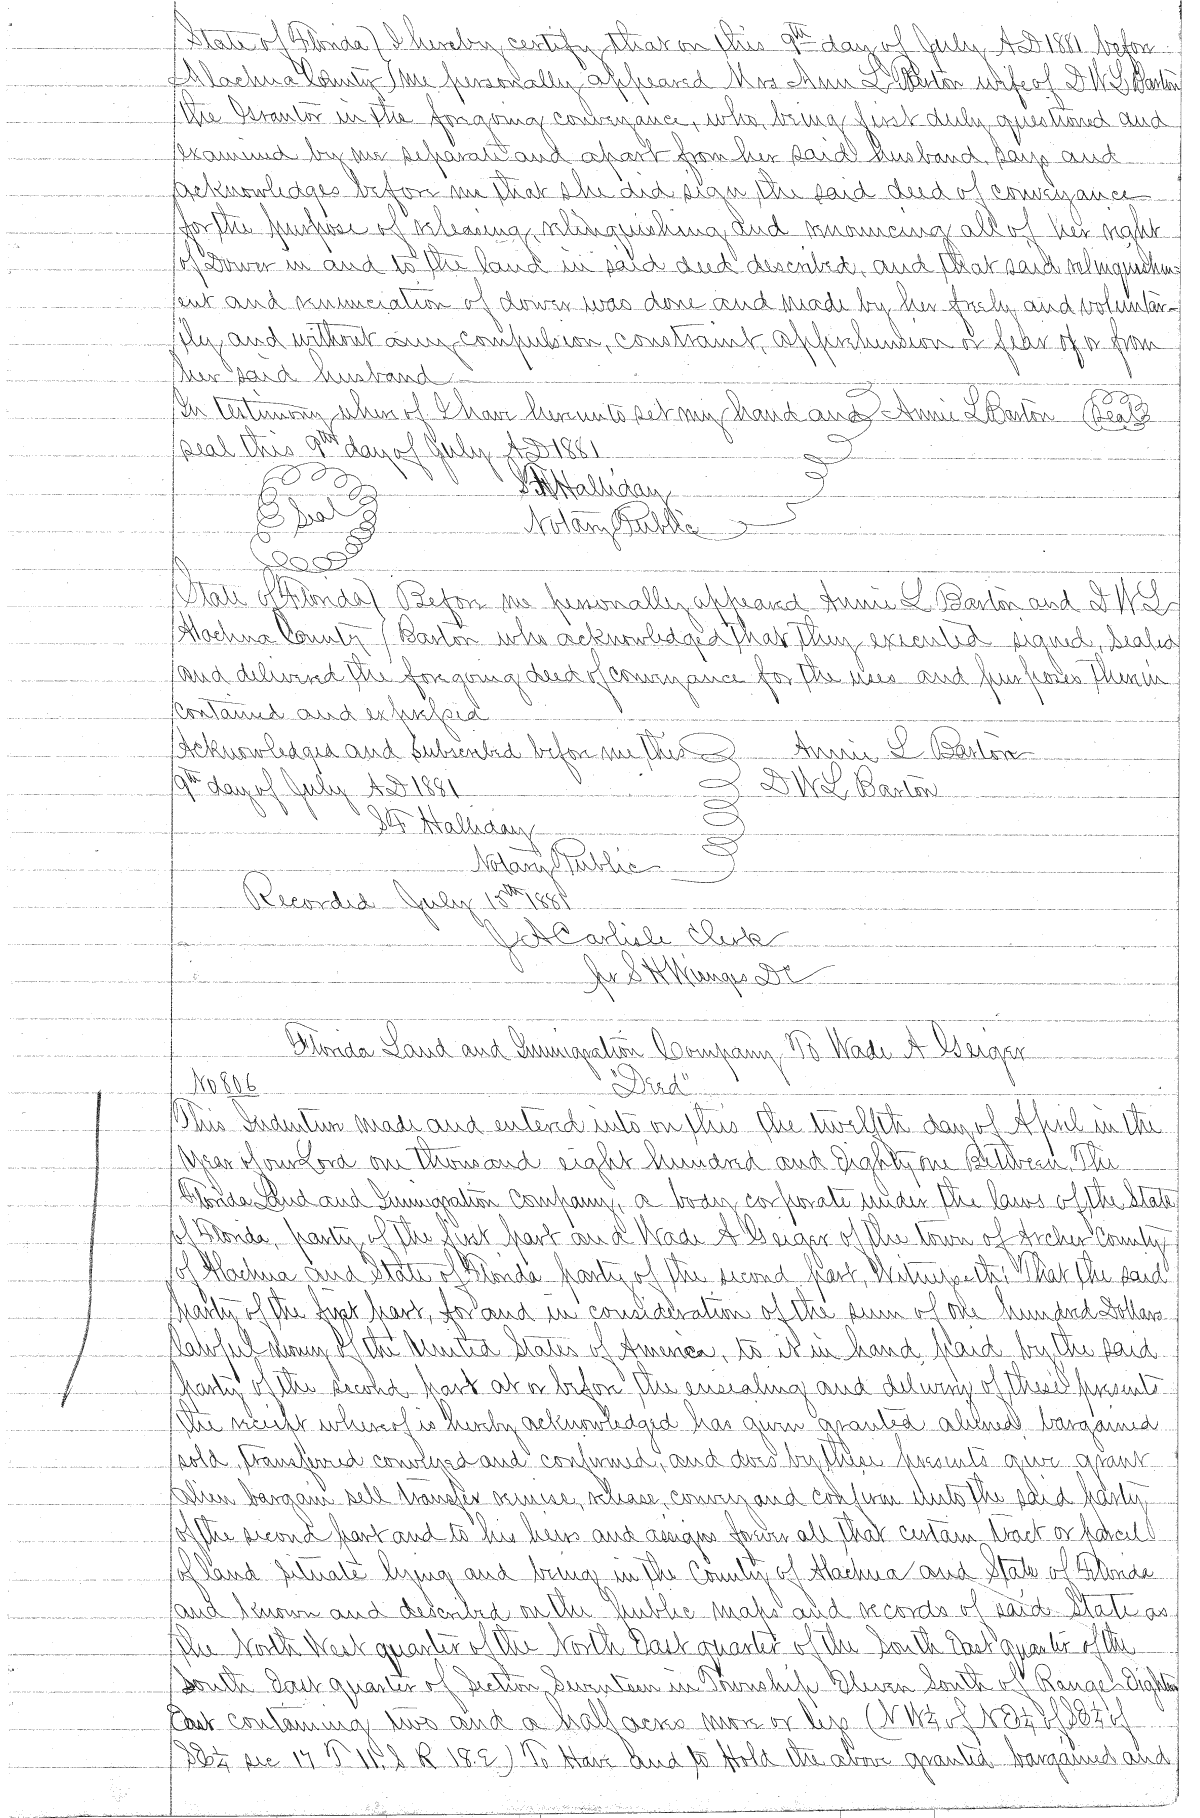 State of Florida } I hereby certify that on this 9th day of July AD 1881 before
Alachua County } me personally appeared Mrs Ann L Barton wife of D W L Barton
the Grantor in the foregoing conveyance, who, being first duly questioned and
examined by me separate and apart from her said husband, says and
acknowledges before me that she did sign the said deed of conveyance
for the purpose of releasing, relinquishing and renouncing all of her right
of Dower in and to the land in said deed described, and that said relinquishm
ent and renunciation of dower was done and made by her freely and voluntar-
ily and without any compulsion, constraint, apprehension or fear of or from
her said husband
In testimony where of I have hereunto set my hand and } Annie L Barton (Seal)
seal this 9th day of July AD 1881
Halliday
Seal Notary Public
State of Florida } Before me personally appeared Annie L Barton and D W L
Alachua County } Barton who acknowledged that they executed signed, sealed
and delivered the foregoing deed of conveyance for the uses and purposes therein
contained and expressed
Acknowledged and subscribed before me this } Annie L Barton
9th day of July AD 1881 D W L Barton
Halliday
Notary Public
Recorded July 15th 1881
J A Carlisle Clerk
pr S H Wienges DC
Florida Land and Immigration Company To Wade A Geiger
No 806 "Deed"
This Indenture made and entered into on this the twelfth day of April in the
Year of our Lord one thousand eight hundred and Eighty one Between The
Florida Land and Immigration Company, a body corporate under the laws of the State
of Florida, party of the first part and Wade A Geiger of the town of Archer County
of Alachua and State of Florida party of the second part, Witnesseth: That the said
party of the first part, for and in consideration of the sum of one hundred Dollars
lawful money of the United States of America, to it in hand paid by the said
party of the second part at or before the ensealing and delivery of these presents
the receipt whereof is hereby acknowledged has given granted aliened, bargained
sold, transferred conveyed and confirmed, and does by these presents give grant
alien bargain sell transfer remise, release, convey and confirm unto the said party
of the second part and to his heirs and assigns forever all that certain tract or parcel
of land situate lying and being in the County of Alachua and State of Florida
and known and described on the public maps and records of said State as
the North West quarter of the North East quarter of the South East quarter of the
South East quarter of Section Seventeen in Township Eleven South of Range Eighteen
East containing two and a half acres more or less (NW¼ of NE¼ of SE¼ of
SE¼ sec 17 T 11, S R 18.E) To Have and to Hold the above granted bargained and